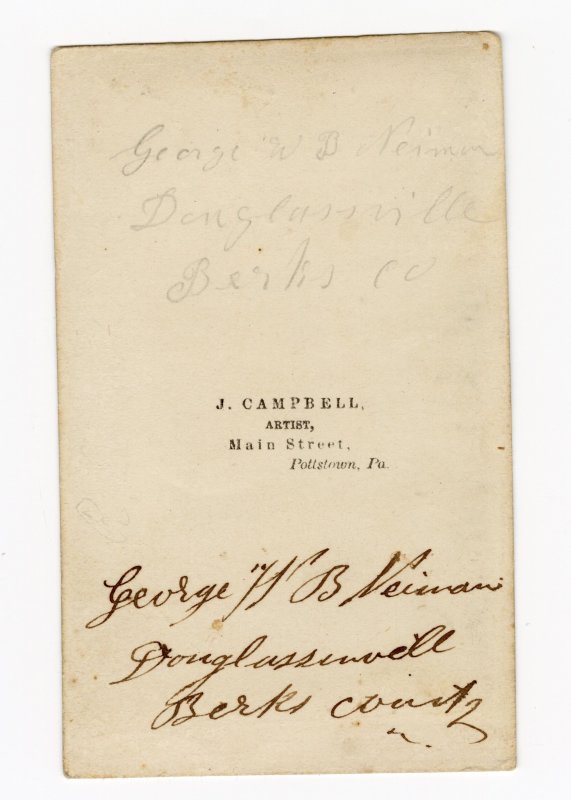 George W B Neiman
Douglassville
Berks co
J. CAMPBELL,
ARTIST,
Main Street,
Pottstown, Pa.
George W B Neiman
Douglassinvill
Berks county